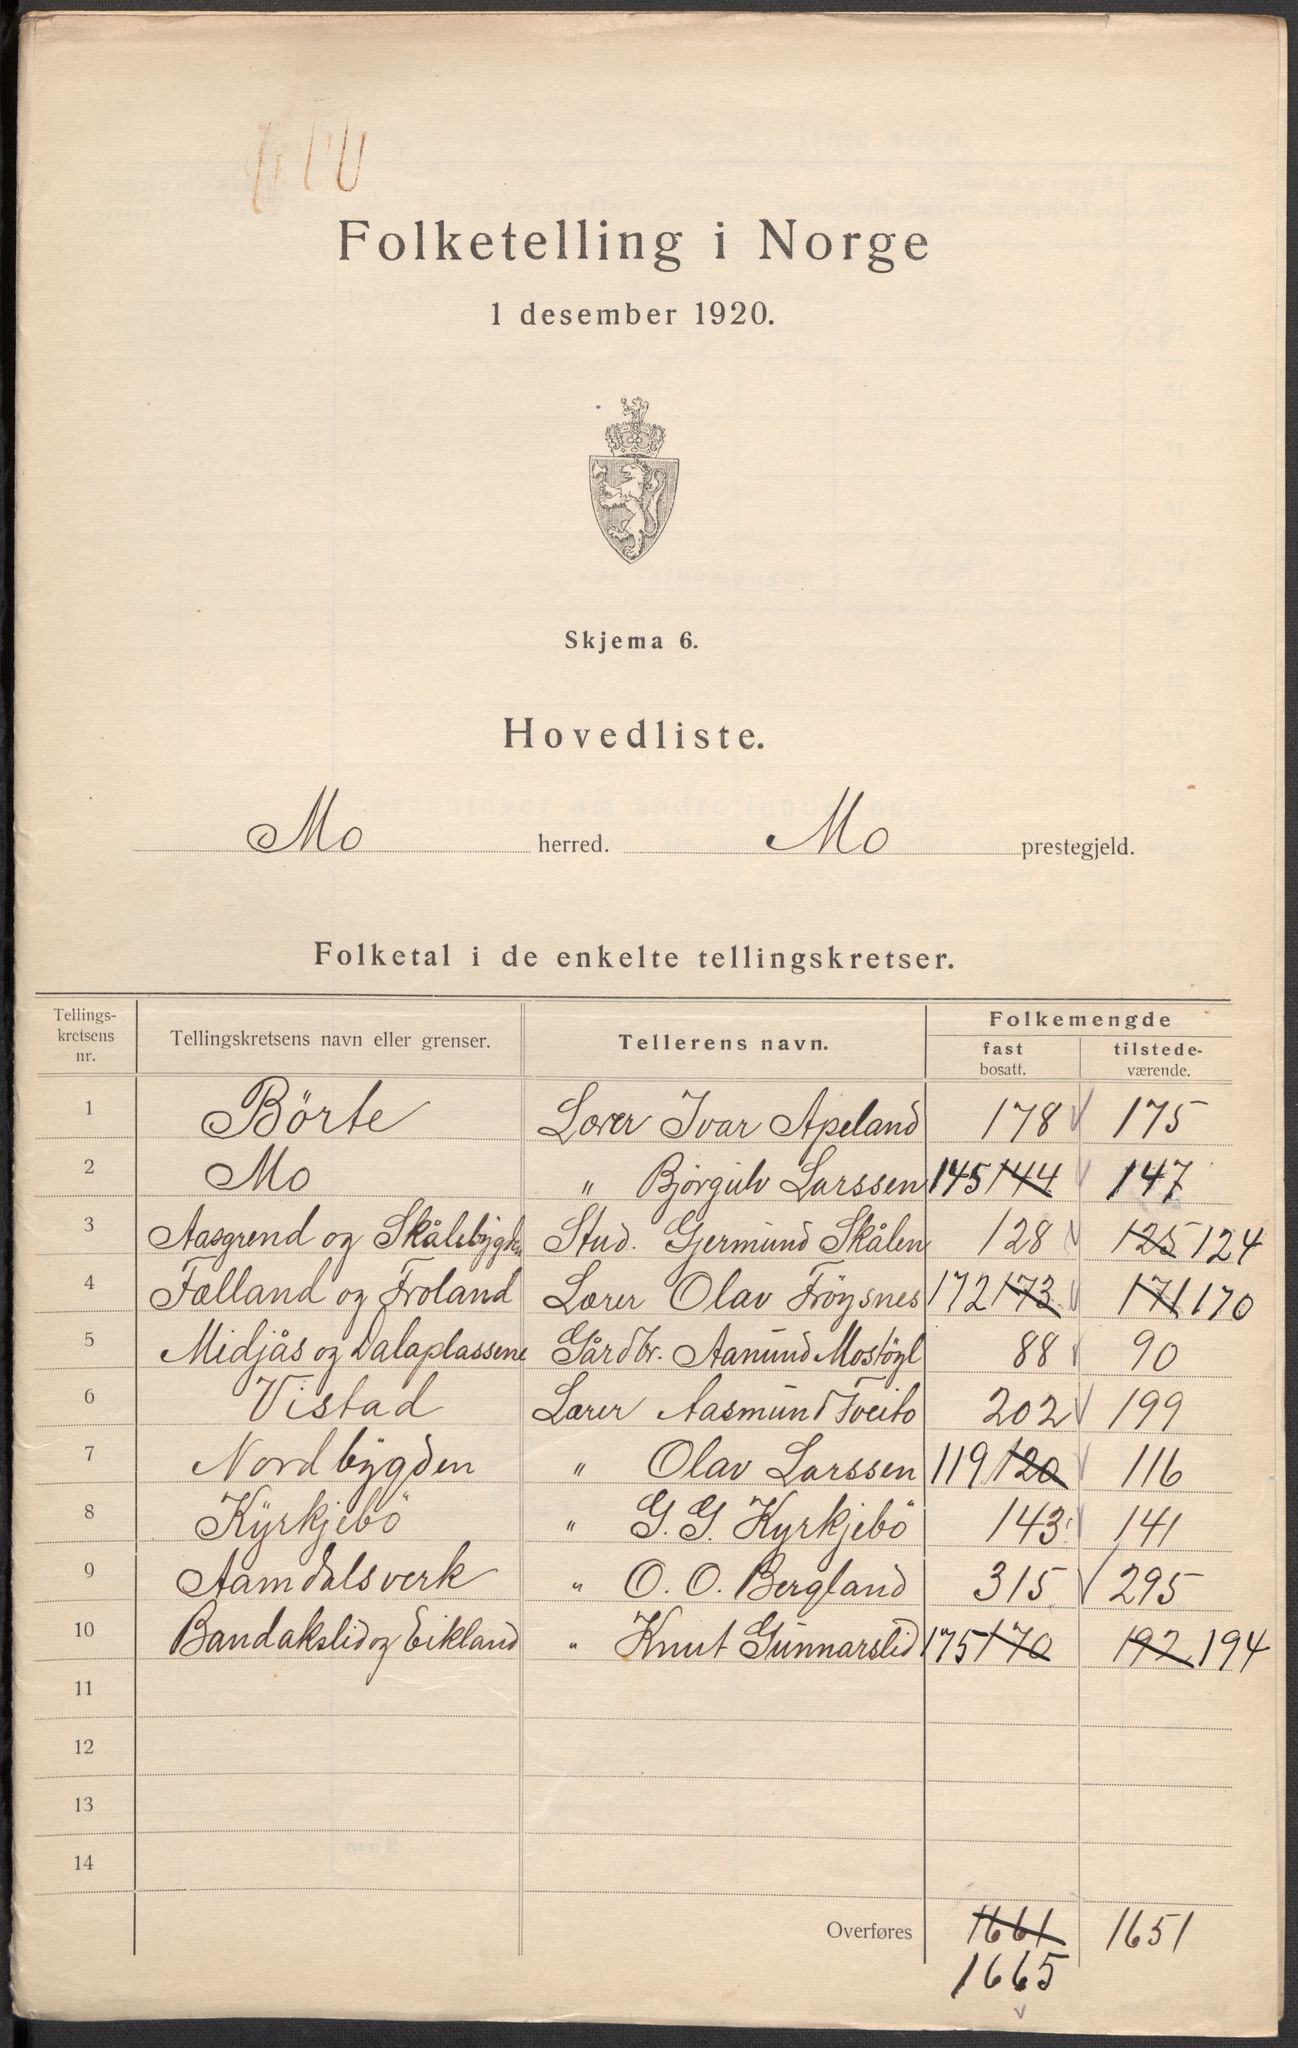 Folketelling i Norge
1 desember 1920.
Skjema 6.
Hovedliste.
Mo herred. Mo prestegjeld.
Folketal i de enkelte tellingskretser.
Tellings-kretsens nr. Tellingskretsens navn eller grenser. Tellerens navn. Folkemengde
fast bosatt. tilstede-værende.
1 Börte Lærer Ivar Apeland 178 175
2 Mo " Björgulv Larssen 145 144 147
3 Aasgrend og Skålebygden Stud. Gjermund Skålen 128 125 124
4 Fælland og Froland Lærer Olav Fröysnes 172 173 171 170
5 Midjås og Dalaplassene Gårdbr. Aanund Mostögl 88 90
6 Vistad Lærer Aasmund Tveito 202 199
7 Nordbygden " Olav Larssen 119 120 116
8 Kyrkjebö " G. G. Kyrkjebö 143 141
9 Aamdalsverk " O. O. Bergland 315 295
10 Bandakslid og Eikland " Knut Gunnarslid 175 170 192 194
11
12
13
14
Overføres 1661 1651
1665